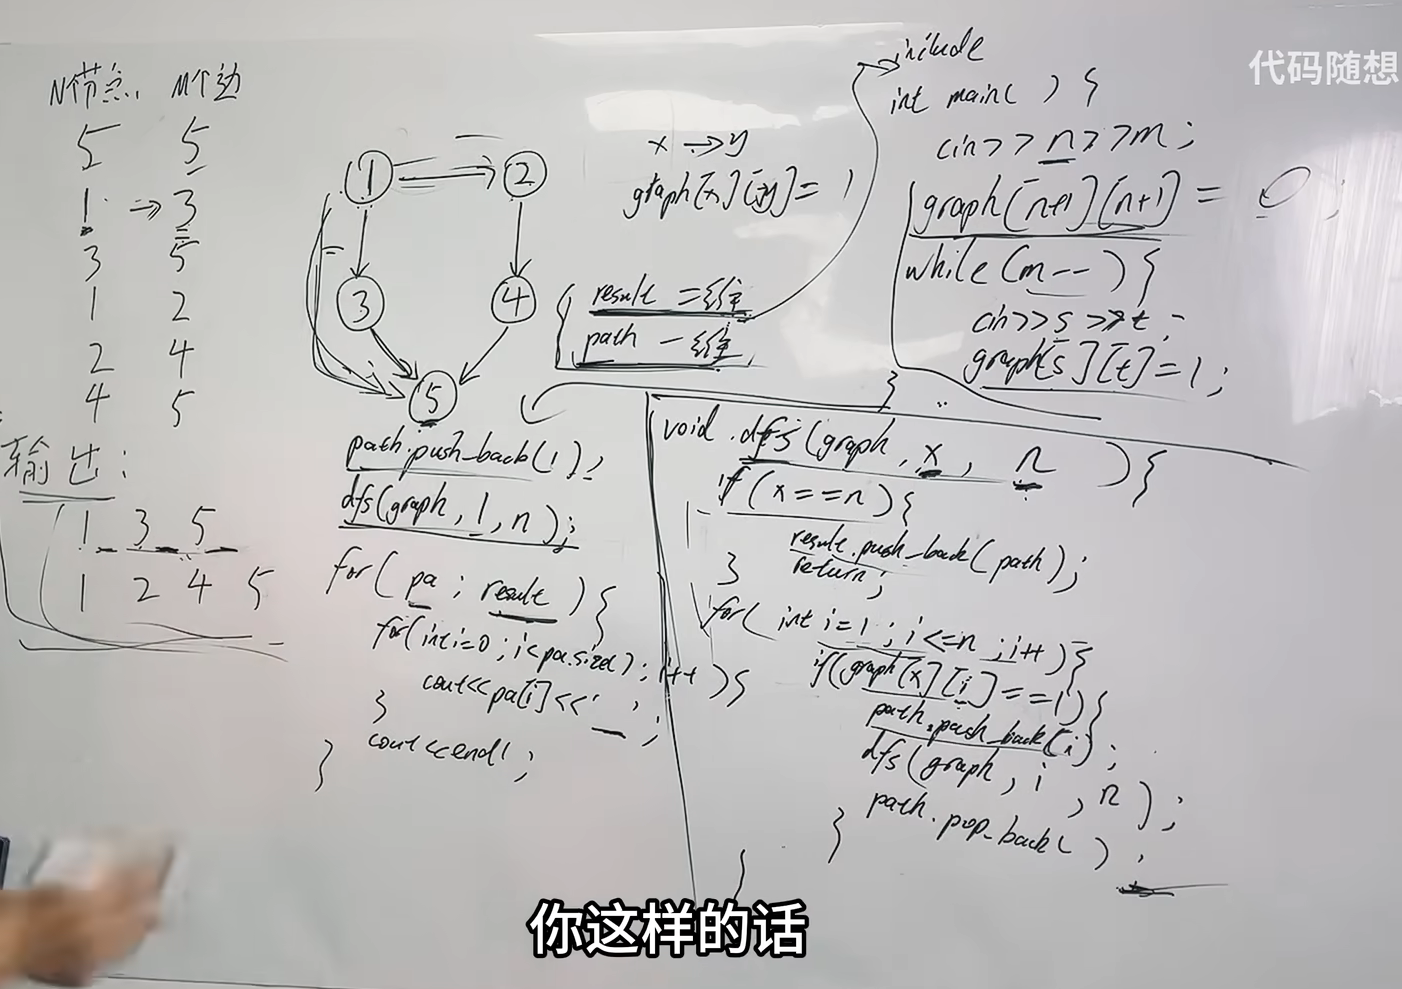 代码随想
N个节点, M个边
5 5
1 → 3
3 5
1 2
2 4
4 5
输出:
1 3 5
1 2 4 5
1 2
3 4
5
x → y
graph[x][y] = 1
result 二维
path 一维
include
int main( ) {
cin>>n>>m;
graph[n+1][n+1] = 0;
while(m--){
cin>>s>>t;
graph[s][t]=1;
}
path.push_back(1);
dfs(graph, 1, n);
for( pa : result ){
for(int i=0; i<pa.size(); i++ ){
cout<<pa[i]<<' ';
}
cout<<endl;
}
void dfs(graph, x, n ){
if (x==n){
result.push_back(path);
return;
}
for( int i=1; i<=n; i++){
if(graph[x][i]==1){
path.push_back(i);
dfs(graph, i, n );
path.pop_back( );
}
}
你这样的话